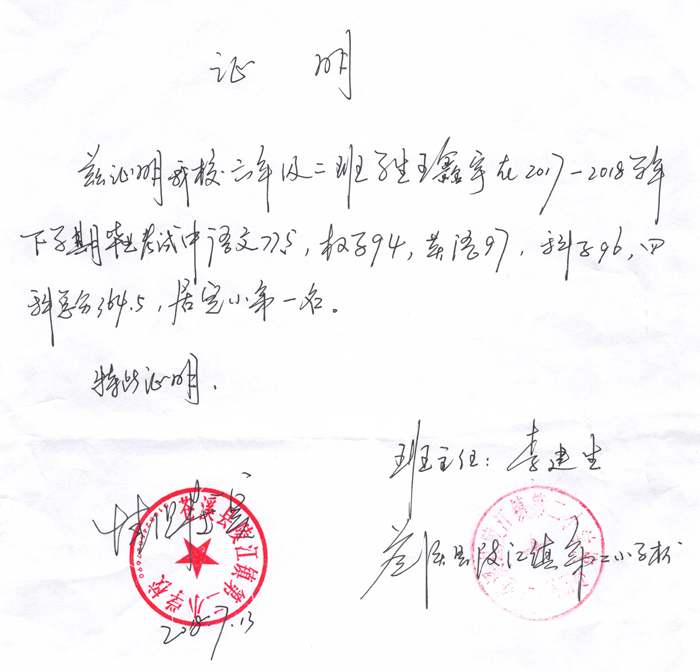 证 明
兹证明我校六年级二班学生王鑫宇在2017-2018学年
下学期毕业考试中语文77.5,数学94,英语97,科学96,四
科总分364.5,居完小第一名。
特此证明.
班主任:李建生
情况属实
苍溪县陵江镇第二小学校
苍溪县陵江镇第二小学校
2018.7.13